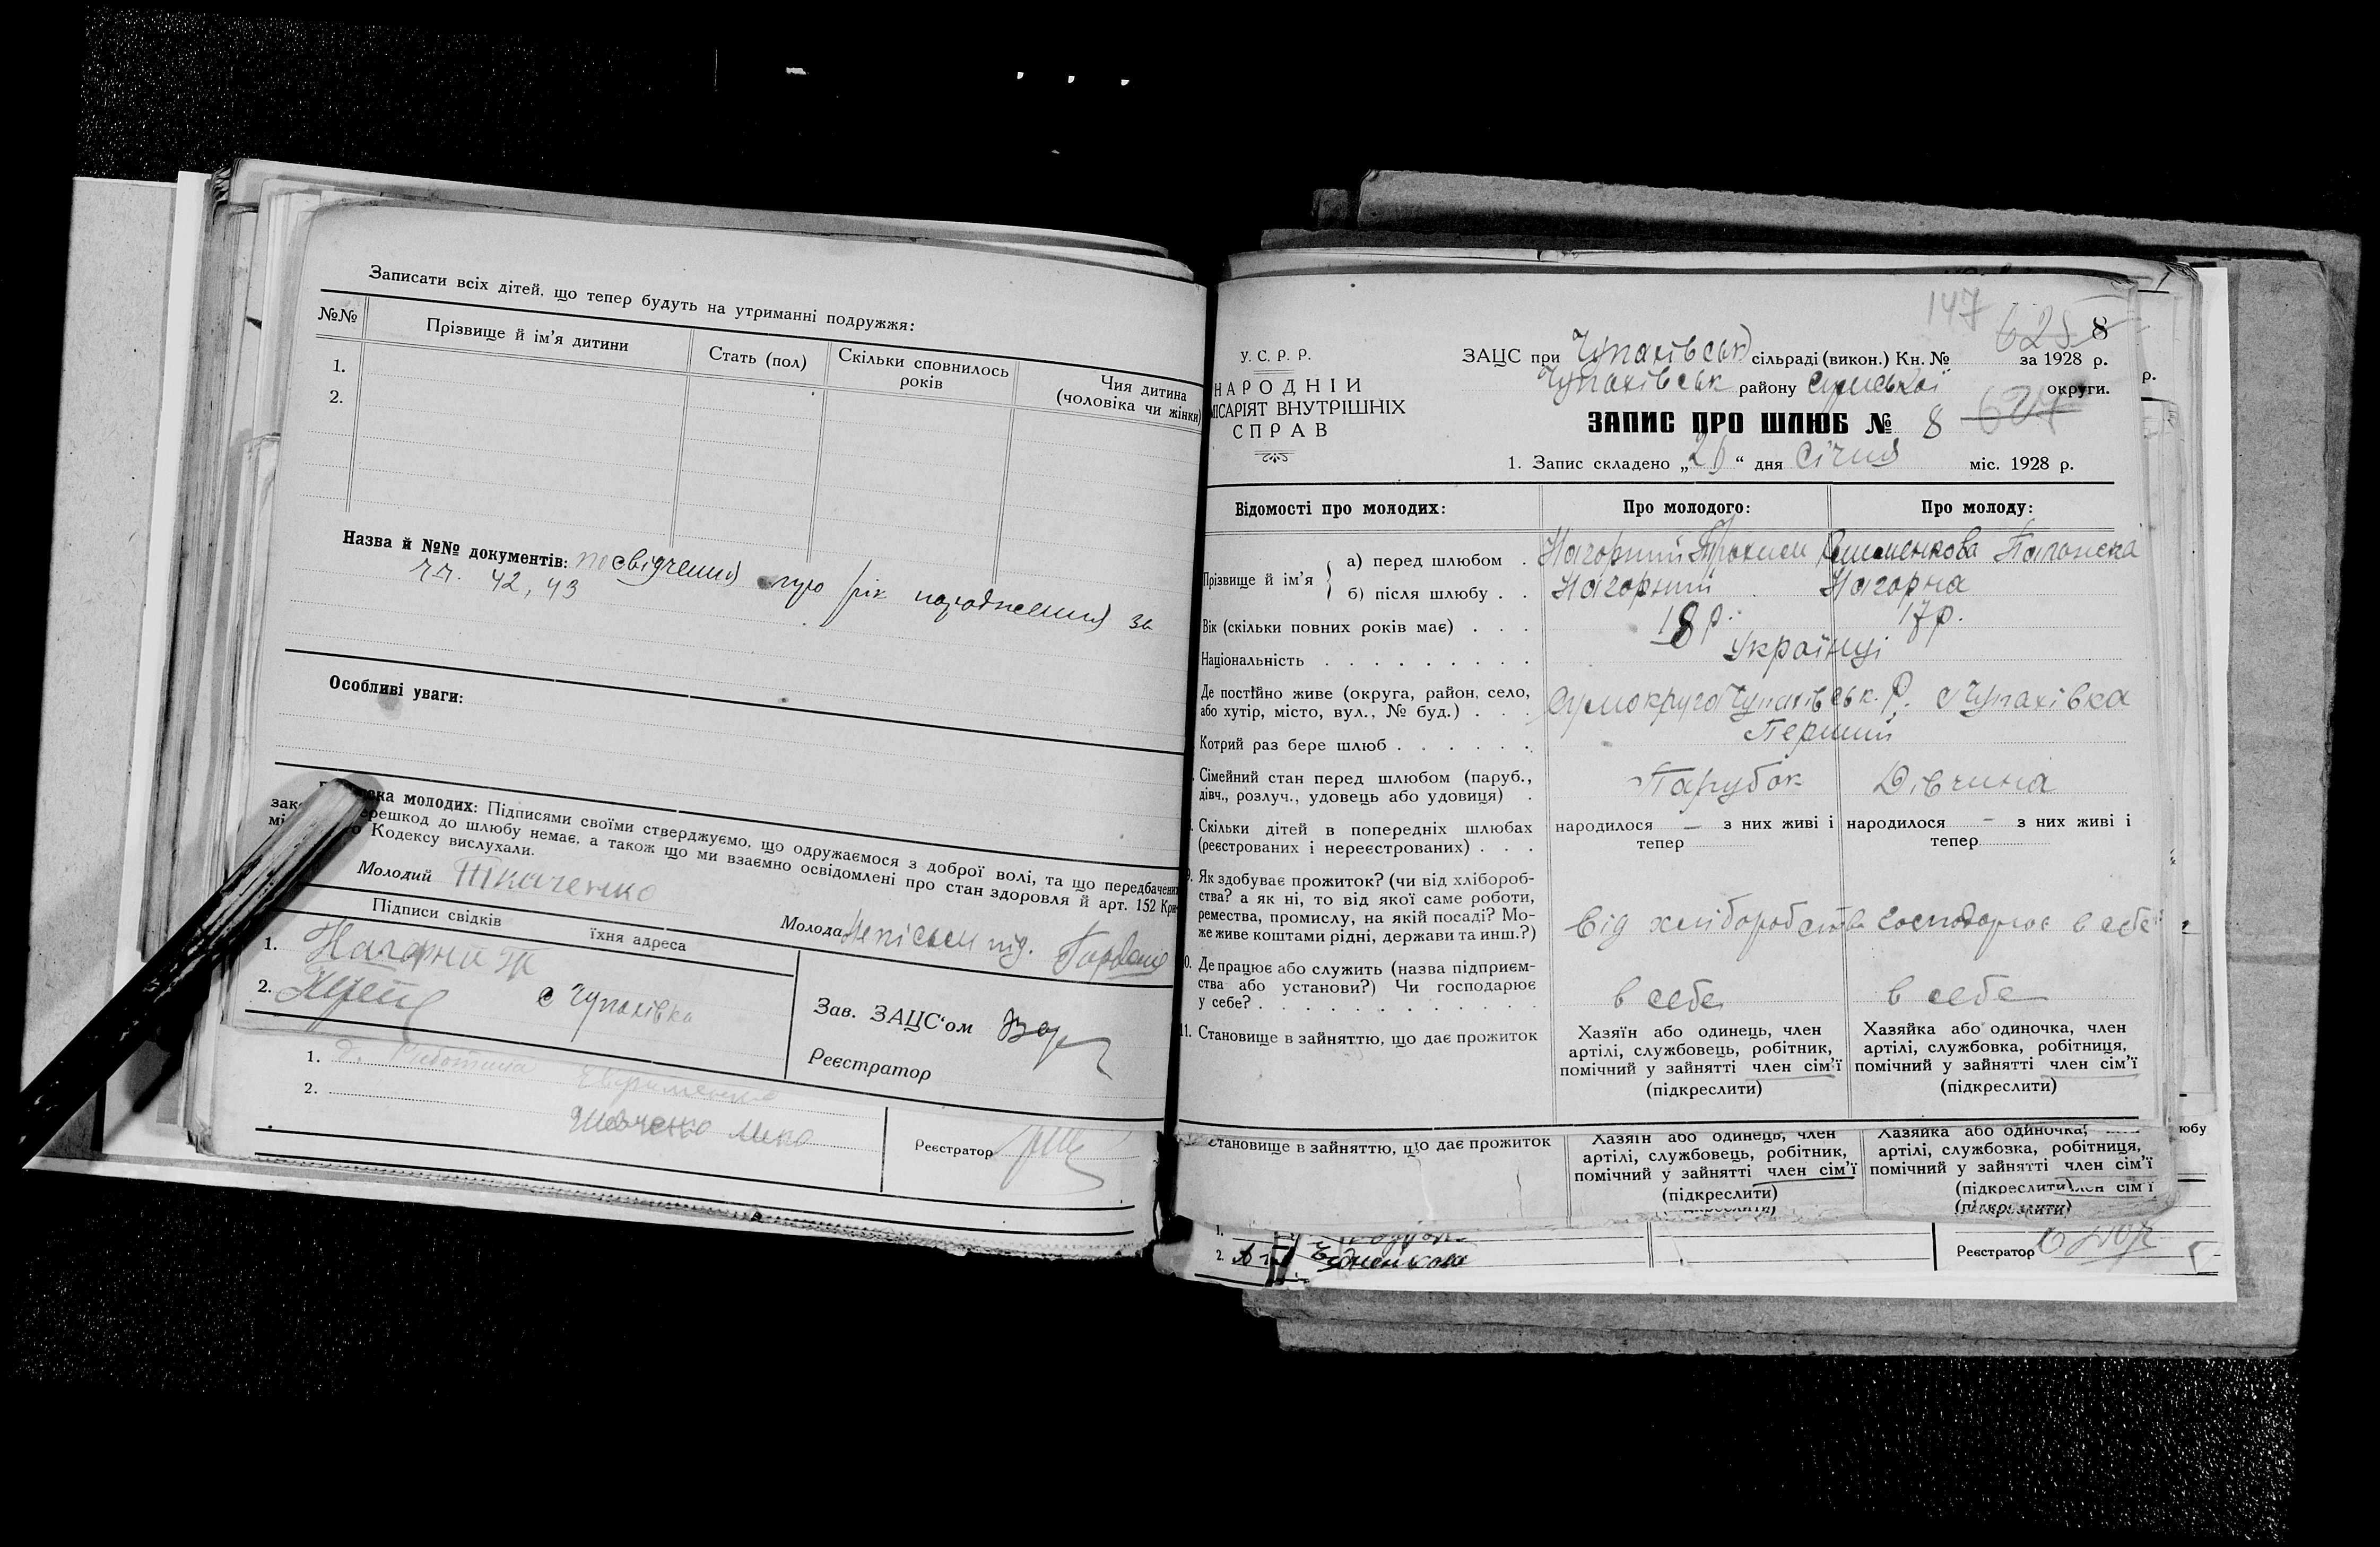 Записати всіх дітей, що тепер будуть на утриманні подружжя:
№№ Прізвище й ім'я дитини Стать (пол) Скільки сповнилось років Чия дитина (чоловіка чи жінки)
1.
2.
Назва й №№ документів: посвідчення про рік народження за
42, 43
Особливі уваги:
молодих: Підписями своїми стверджуємо, що одружаємося з доброї волі, та що передбачених
до шлюбу немає, а також що ми взаємно освідомлені про стан здоровля й арт. 152 Кри
Кодексу вислухали.
Молодий Ткаченко Молода
Підписи свідків їхня адреса
1. Нагорний
2. с Чупахівка
Зав. ЗАЦС'ом
Реєстратор
1.
2. Шевченко
Реєстратор
147
625 8
У. С. Р. Р.
НАРОДНІЙ
МІСАРІЯТ ВНУТРІШНІХ
СПРАВ
ЗАЦС при Чупахівськ сільраді (викон.) Кн. № за 1928 р.
Чупахівськ району Сумської округи.
ЗАПИС ПРО ШЛЮБ № 8 627
1. Запис складено „26“ дня Січня міс. 1928 р.
Відомості про молодих: Про молодого: Про молоду:
Прізвище й ім'я
а) перед шлюбом . Нагорний Трохим Палажка
б) після шлюбу . . Нагорний Нагорна
Вік (скільки повних років має) . . . 18 р. 17 р.
Національність . . . . . . . . . Українці
Де постійно живе (округа, район, село,
або хутір, місто, вул., № буд.) . . . Сумокруга Чупахівськ. Р. с Чупахівка
Котрий раз бере шлюб . . . . . . Перший
Сімейний стан перед шлюбом (паруб.,
дівч., розлуч., удовець або удовиця) . Парубок Дівчина
Скільки дітей в попередніх шлюбах
(реєстрованих і нереєстрованих) . . .
народилося — з них живі і тепер
народилося — з них живі і тепер
9. Як здобуває прожиток? (чи від хлібороб-
ства? а як ні, то від якої саме роботи,
ремества, промислу, на якій посаді? Мо-
же живе коштами рідні, держави та инш.?)
від хліборобства господарює в себе
0. Де працює або служить (назва підприєм-
ства або установи?) Чи господарює
у себе? . . . . . . . . . . . . в себе в себе
11. Становище в зайняттю, що дає прожиток
Хазяїн або одинець, член
артілі, службовець, робітник,
помічний у зайнятті член сім'ї
(підкреслити)
Хазяйка або одиночка, член
артілі, службовка, робітниця,
помічний у зайнятті член сім'ї
(підкреслити)
Становище в зайняттю, що дає прожиток
Хазяїн або одинець, член
артілі, службовець, робітник,
помічний у зайнятті член сім'ї
(підкреслити)
Хазяйка або одиночка,
артілі, службовка, робітниця,
помічний у зайнятті член сім'ї
(підкреслити)
член сім'ї
(підкреслити)
1.
2.
Реєстратор
р.
любу